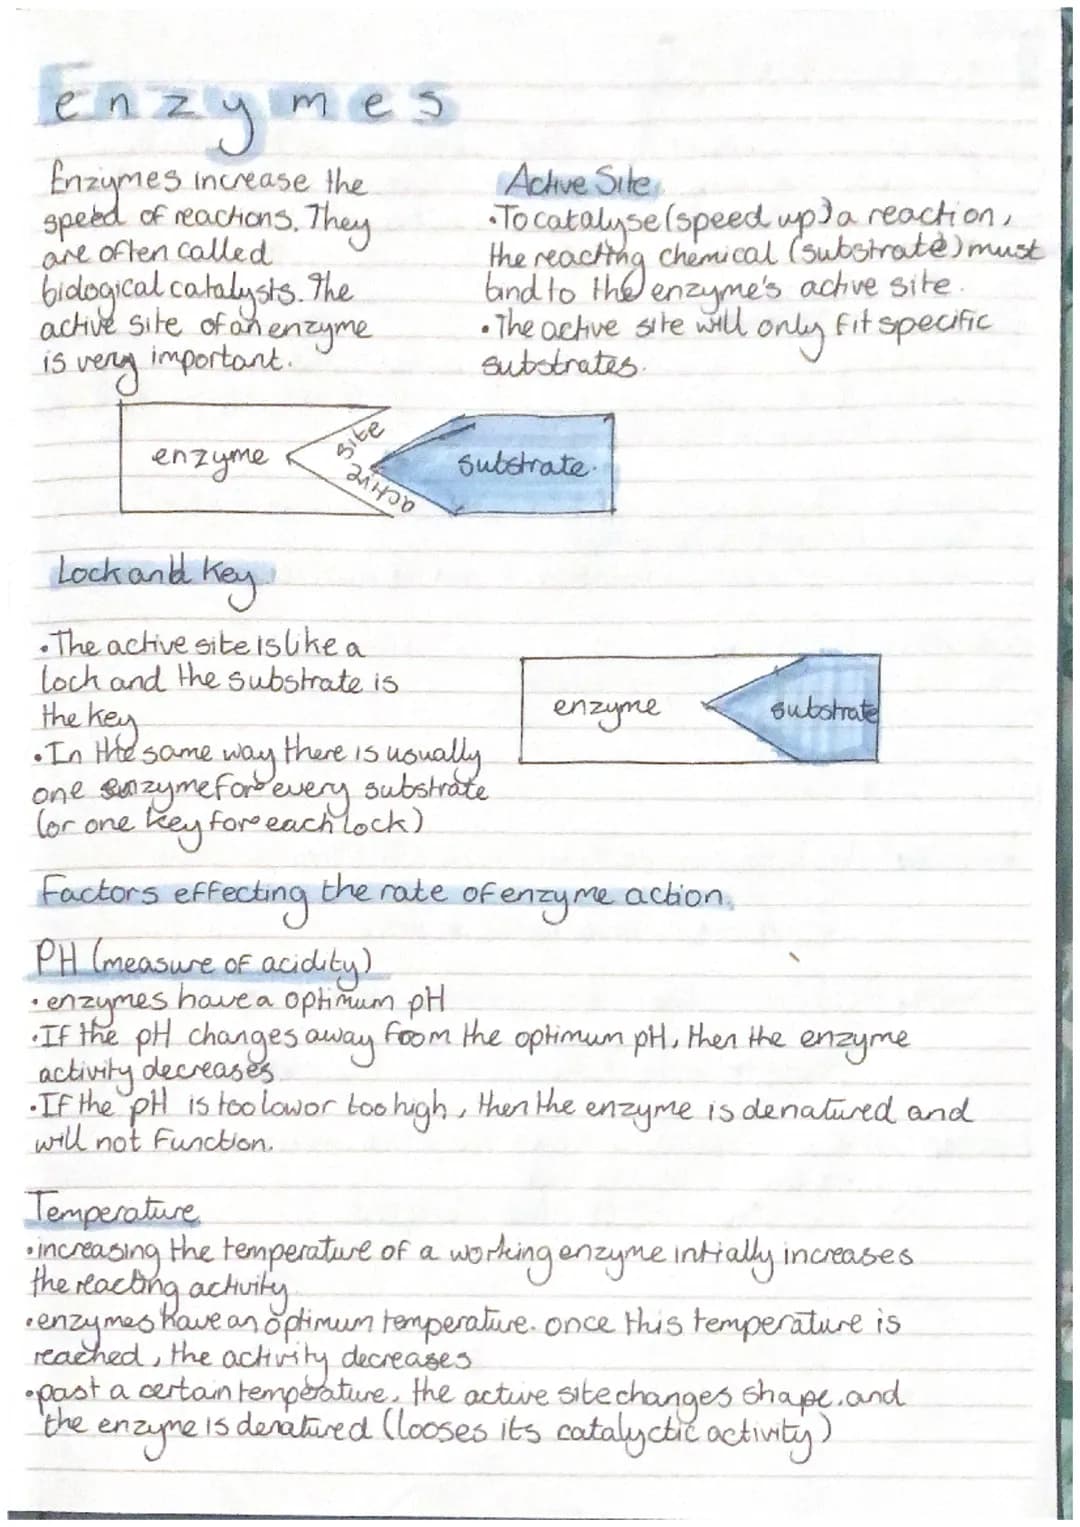 enzymes
Enzymes increase the
speed of reactions. They
are often called
biological catalysts. The
active site of an enzyme
is very important.
Active Site
• To catalyse (speed up) a reaction,
the reacting chemical (substrate) must
bind to the enzyme's active site.
• The active site will only fit specific
substrates.
enzyme
active site
substrate.
Lock and key
• The active site is like a
lock and the substrate is
the key
• In the same way there is usually
one enzyme for every substrate
(or one key for each lock)
enzyme
substrate
Factors effecting the rate of enzyme action.
PH (measure of acidity)
• enzymes have a optimum pH
• If the pH changes away from the optimum pH, then the enzyme
activity decreases
• If the pH is too low or too high, then the enzyme is denatured and
will not function.
Temperature
• increasing the temperature of a working enzyme intially increases
the reacting activity
• enzymes have an optimum temperature. once this temperature is
reached, the activity decreases
• past a certain temperature, the active site changes shape. and
the enzyme is denatured (looses its catalyctic activity)